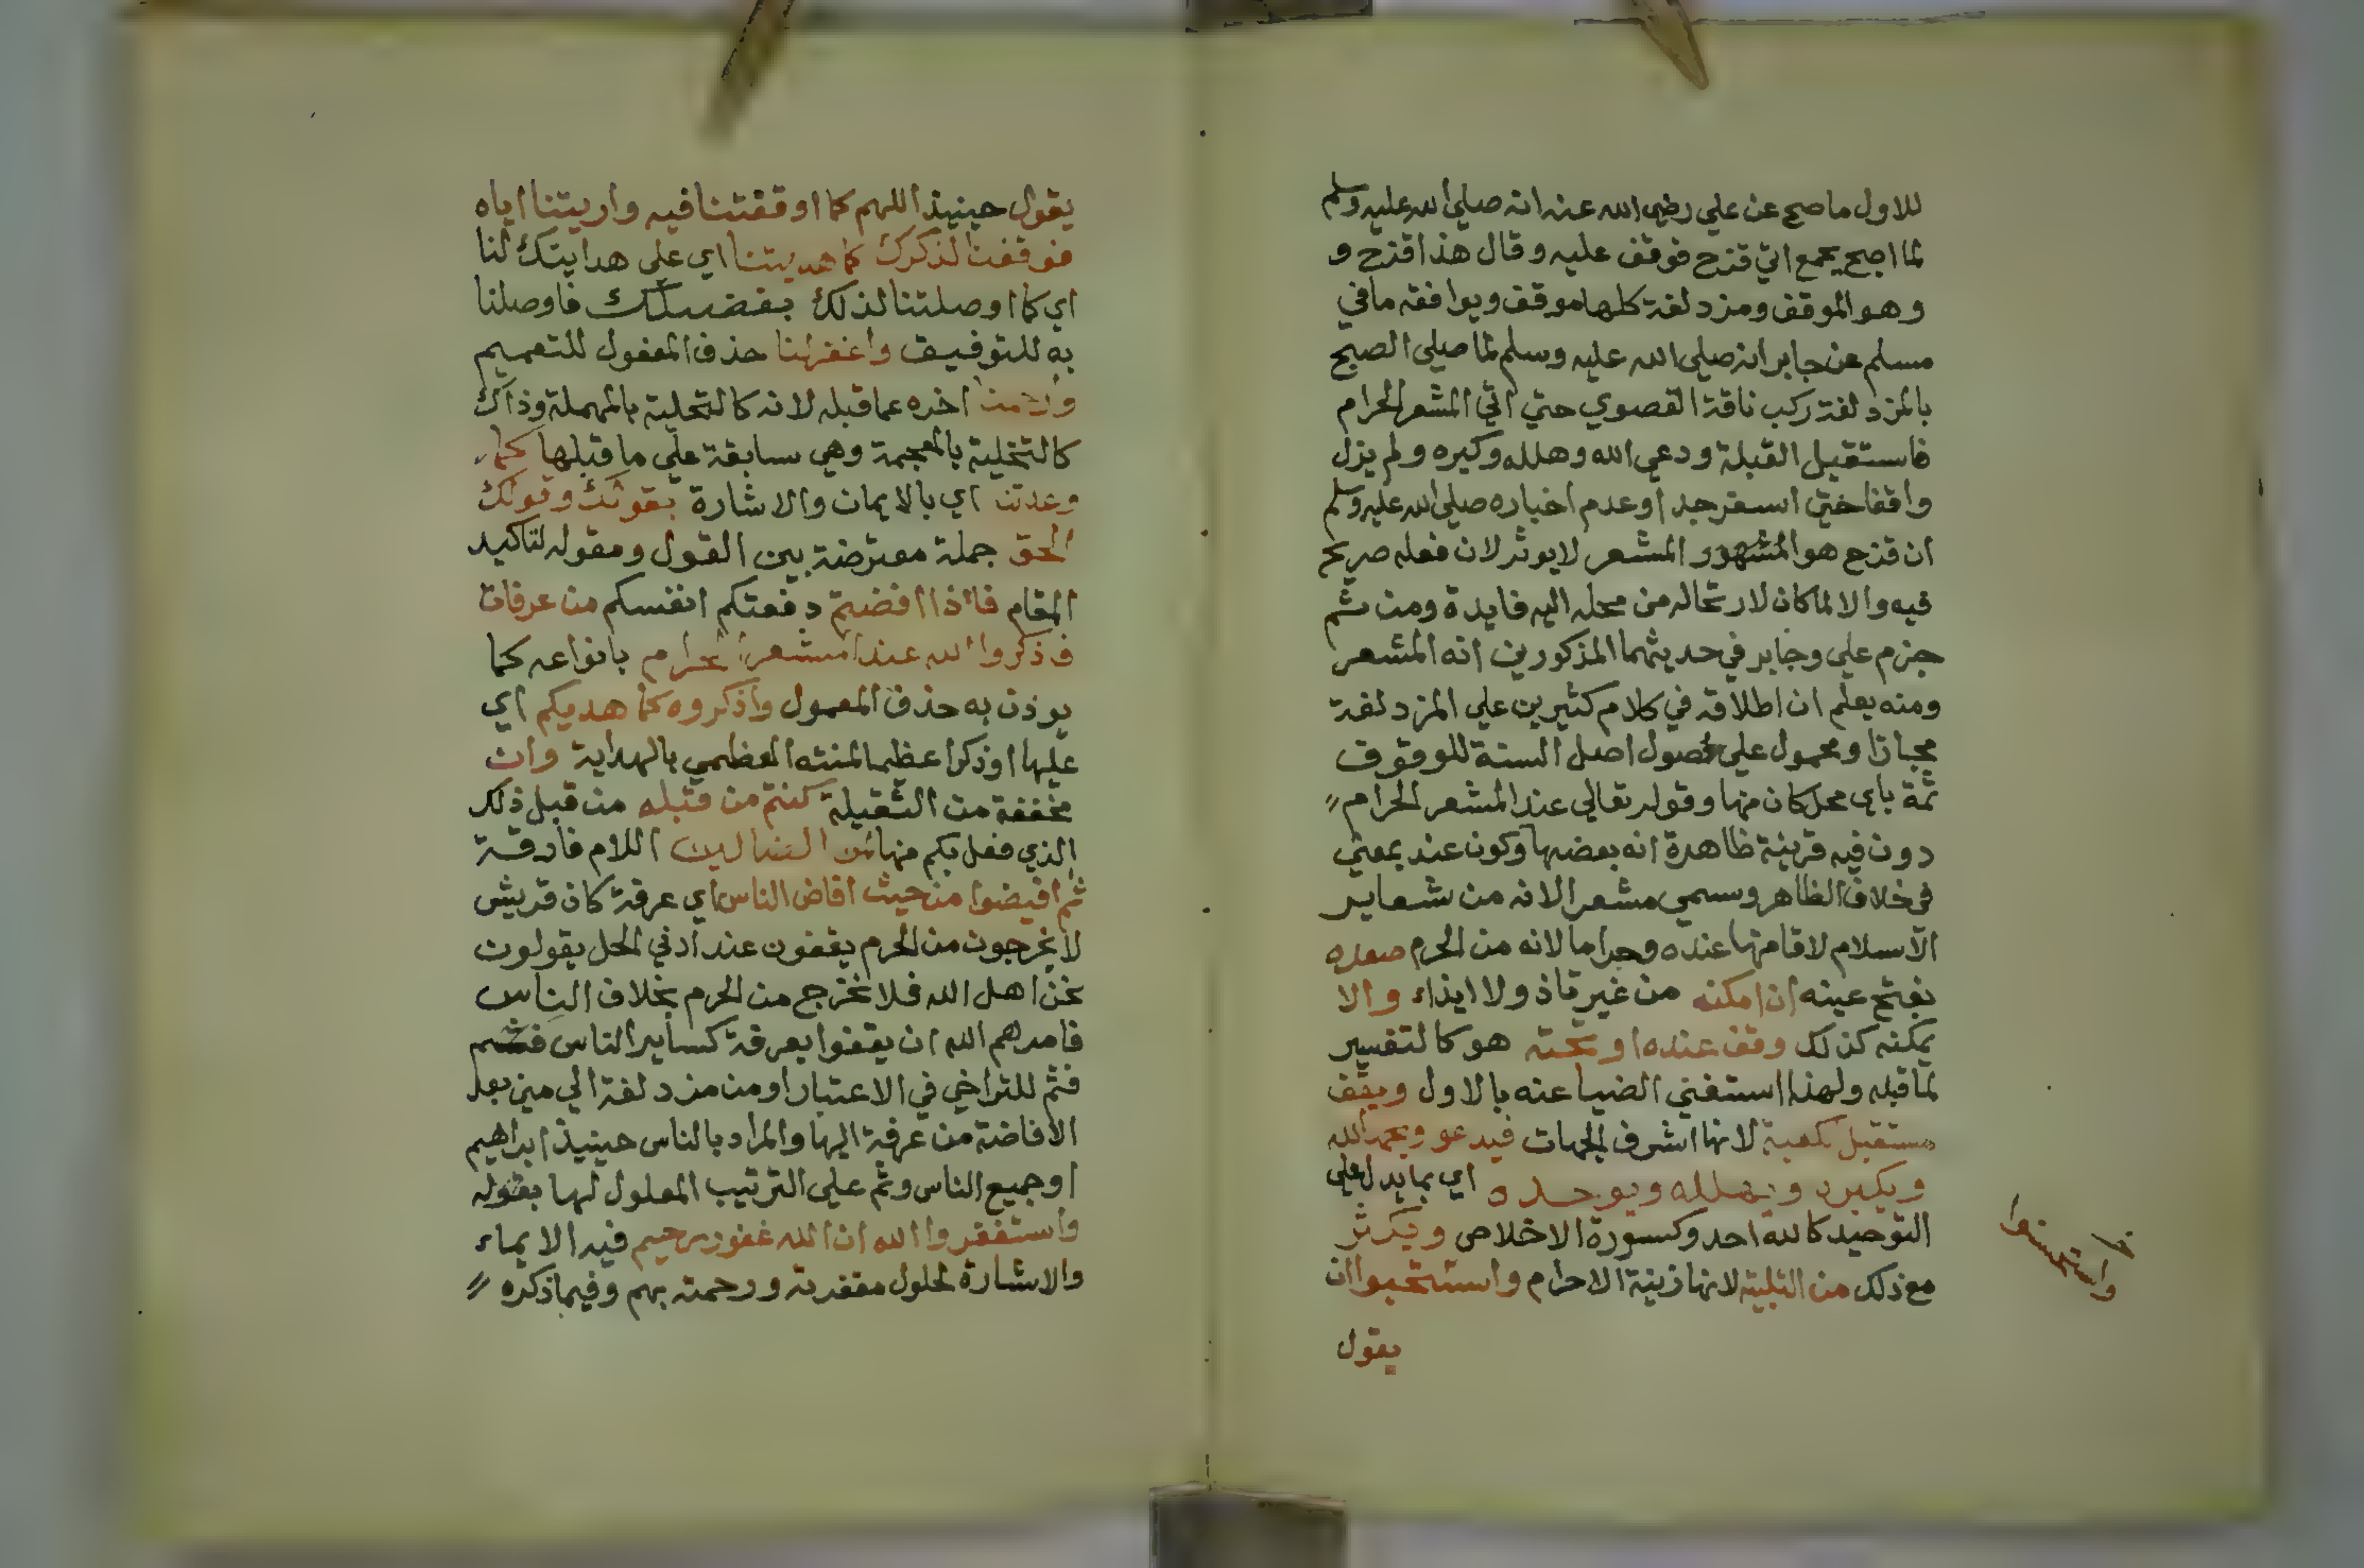 للاول ما صح عن علي رضي الله عنه انه صلي الله عليه وسلم
لما اصبح بجمع اتي قزح فوقف عليه وقال هذا قزح و
وهو الموقف ومزدلفة كلها موقف ويوافقه ما في
مسلم عن جابر انه صلي الله عليه وسلم لما صلي الصبح
بالمزدلفة ركب ناقة القصوي حتي اتي المشعر الحرام
فاستقبل القبلة ودعي الله وهلله وكبره ولم يزل
واقفا حتي اسفر جدا وعدم اخباره صلي الله عليه وسلم
ان قزح هو المشهور المشعر لا يوثر لان فعله صريح
فيه والا لما كان لارتحاله من محله اليه فايدة ومن ثم
جزم علي وجابر في حديثهما المذكورين انه المشعر
ومنه يعلم ان اطلاقه في كلام كثيرين علي المزدلفة
مجازا ومحمول علي حصول اصل السنة للوقوف
ثمة باي محل كان منها وقوله تعالي عند المشعر الحرام
دون فيه قرينة ظاهرة انه بعضها وكون عند بمعني
في خلاف الظاهر وسمي مشعرا لانه من شعاير
الاسلام لاقامتها عنده وحراما لانه من الحرم صعده
بفتح عينه ان امكنه من غير تاذ ولا ايذاء والا
يمكنه كذلك وقف عنده او تحته هو كالتفسير
لما قبله ولهذا استغني الضيا عنه بالاول ويقف
مستقبل الكعبة لانها اشرف الجهات فيدعو ويحمد الله
ويكبره ويهلله ويوحده اي بما يدل علي
التوحيد كالله احد وكسورة الاخلاص ويكثر
مع ذلك من التلبية لانها زينة الاحرام واستحبوا ان
يقول
واستحسنوا
يقول حينيذ اللهم كما اوقفتنا فيه واريتنا اياه
فوقفنا لذكرك كما هديتنا اي علي هدايتك لنا
اي كما اوصلتنا لذلك بفضلك فاوصلنا
به للتوفيق واغفر لنا حذف المفعول للتعميم
وارحمنا اخره عما قبله لانه كالتحلية بالمهملة وذاك
كالتخلية بالمعجمة وهي سابقة علي ما قبلها كما
وعدتنا اي بالايمان والاشارة بقولك وقولك
الحق جملة معترضة بين القول ومقوله لتاكيد
المقام فاذا افضتم دفعتكم انفسكم من عرفات
فاذكروا الله عند المشعر الحرام بانواعه كما
يوذن به حذف المعمول واذكروه كما هديكم اي
عليها او ذكرا عظيما لمنته العظمي بالهداية وان
مخففة من الثقيلة كنتم من قبله من قبل ذلك
الذي فعل بكم منها لمن الضالين اللام فارقة
ثم افيضوا من حيث افاض الناس اي عرفة كان قريش
لا يخرجون من الحرم يقفون عند ادني الحل يقولون
نحن اهل الله فلا نخرج من الحرم بخلاف الناس
فامرهم الله ان يقفوا بعرفة كساير الناس فثم
فثم للتراخي في الاعتبار او من مزدلفة الي مني بعد
الافاضة من عرفة اليها والمراد بالناس حينيذ ابراهيم
او جميع الناس وثم علي الترتيب المعلول لها بقوله
واستغفروا الله ان الله غفور رحيم فيه الايماء
والاشارة لحلول مغفرته ورحمته بهم وفيما ذكره